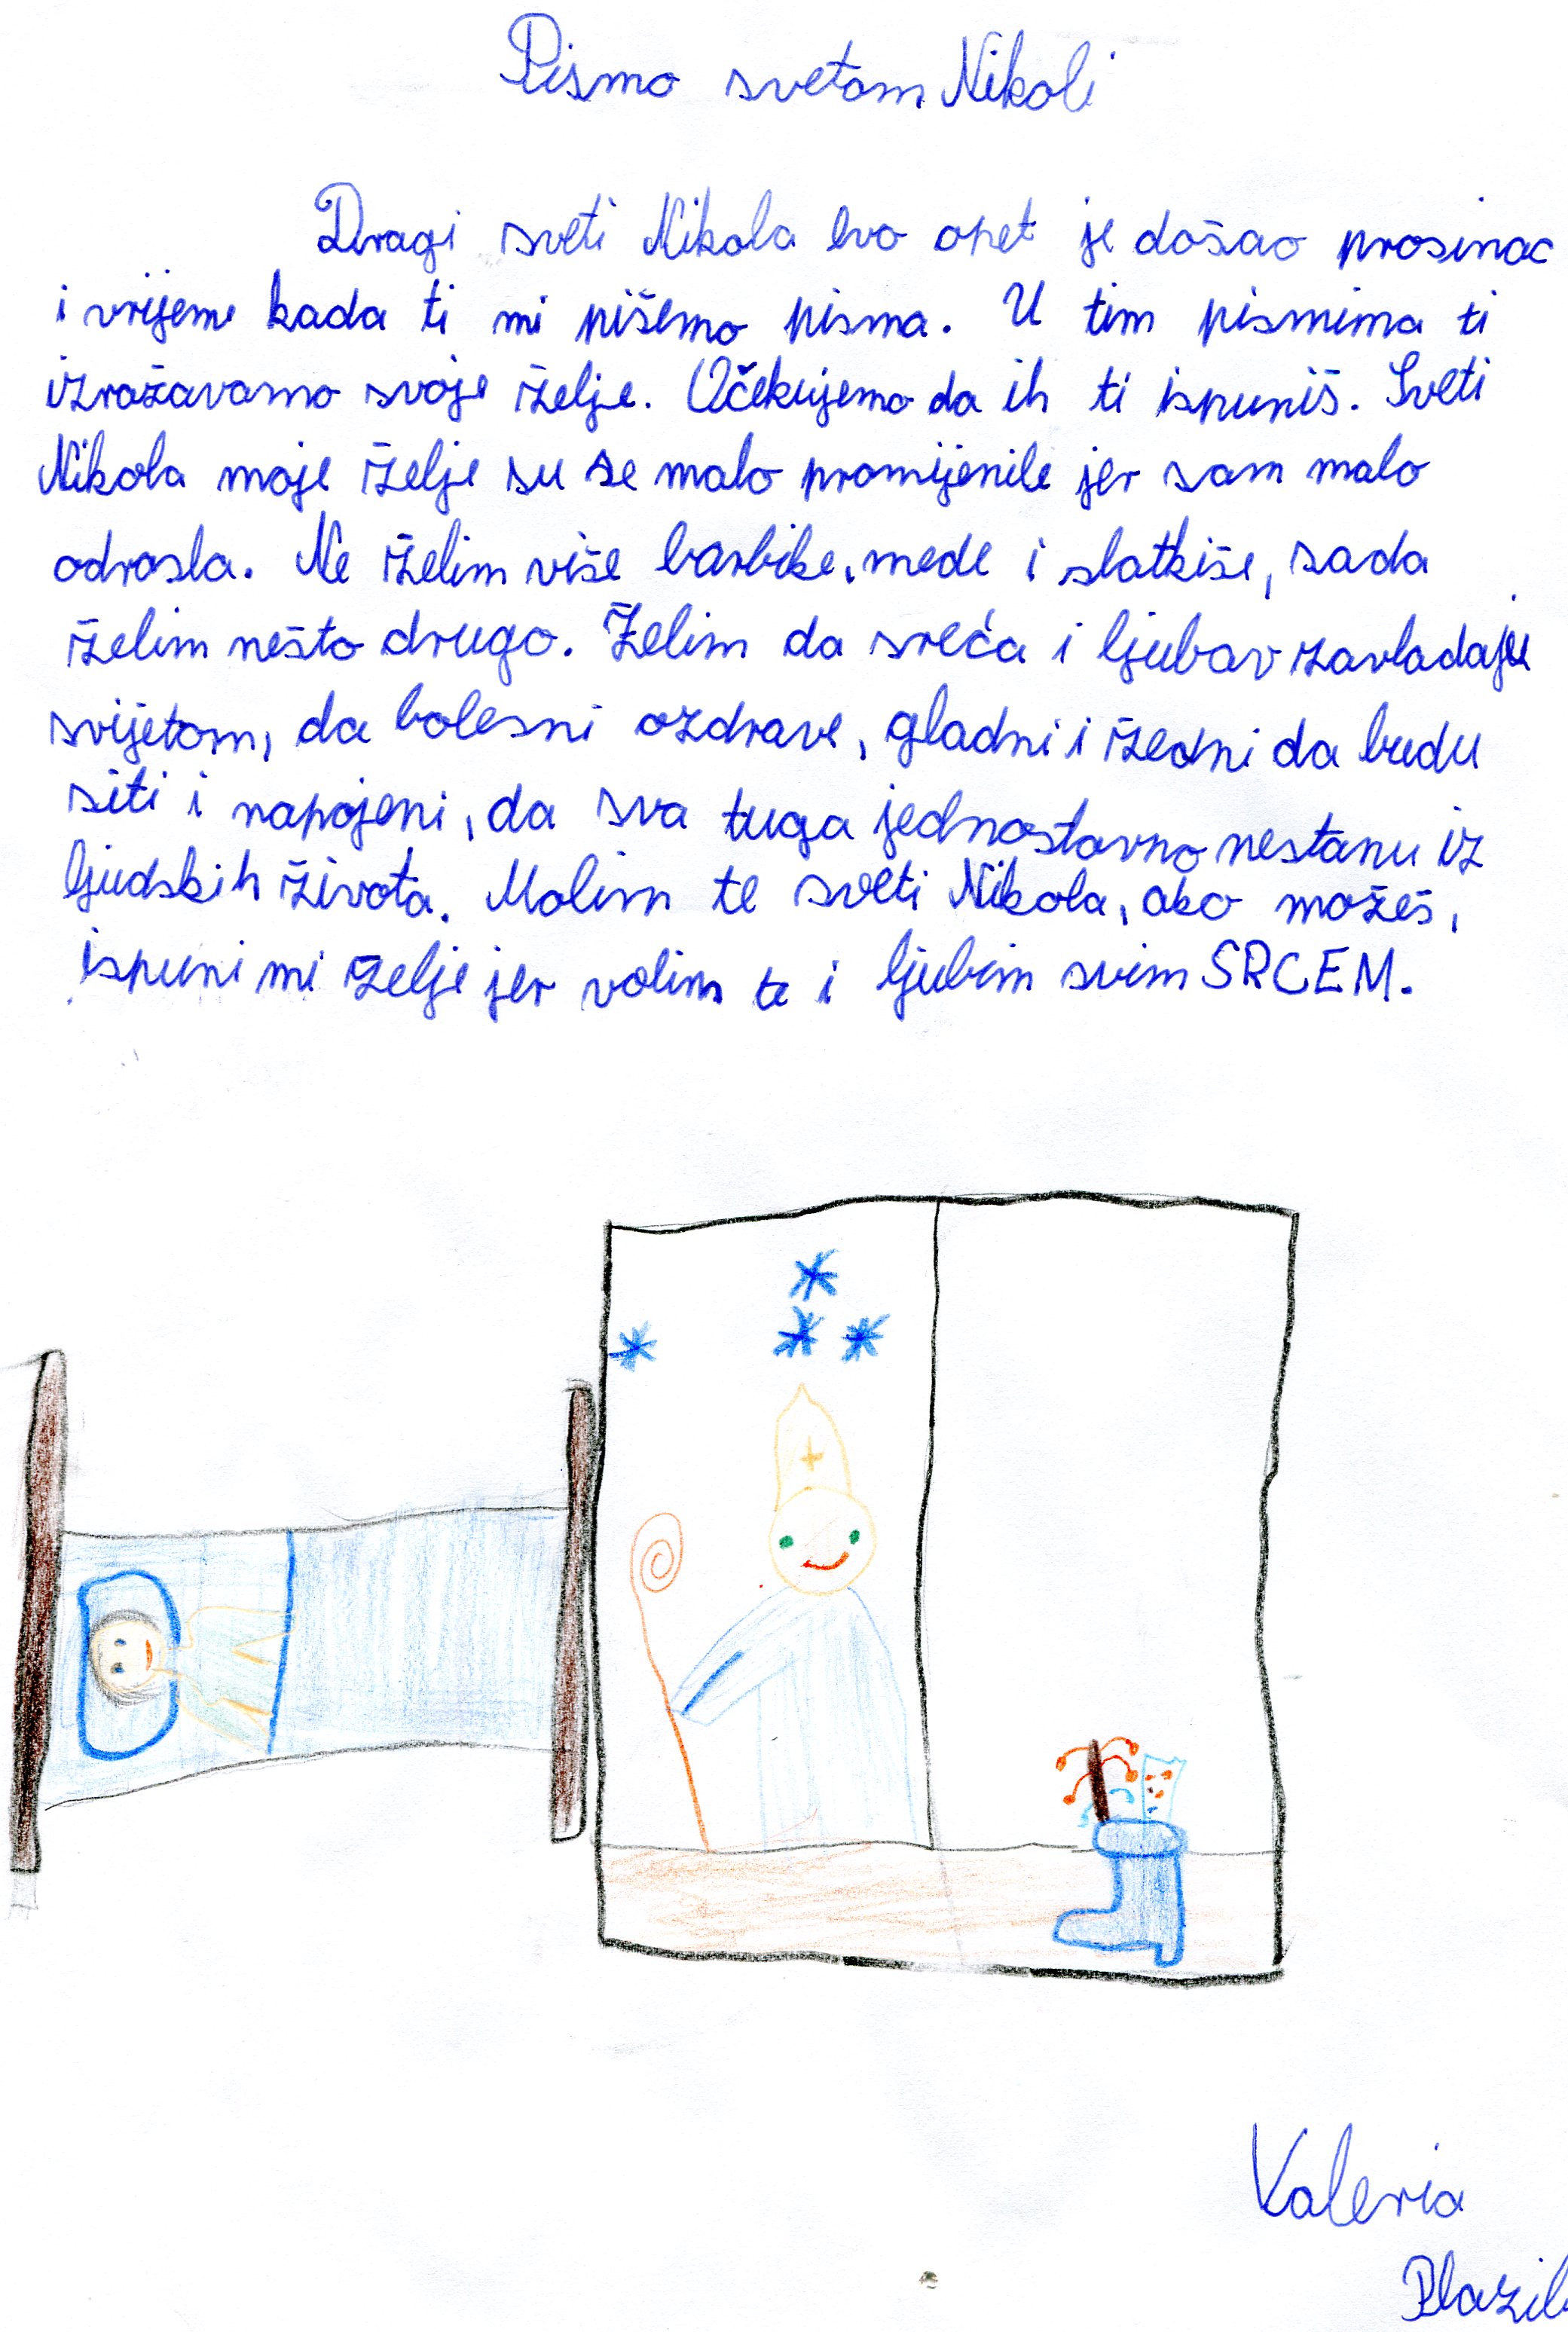 Pismo svetom Nikoli
Dragi sveti Nikola evo opet je došao prosinac
i vrijeme kada ti mi pišemo pisma. U tim pismima ti
izražavamo svoje želje. Očekujemo da ih ti ispuniš. Sveti
Nikola moje želje su se malo promijenile jer sam malo
odrasla. Ne želim više barbike, mede i slatkiše, sada
želim nešto drugo. Želim da sreća i ljubav zavladaju
svijetom, da bolesni ozdrave, gladni i žedni da budu
siti i napojeni, da sva tuga jednostavno nestanu iz
ljudskih života. Molim te sveti Nikola, ako možeš,
ispuni mi želje jer volim te i ljubim svim SRCEM.
Valeria